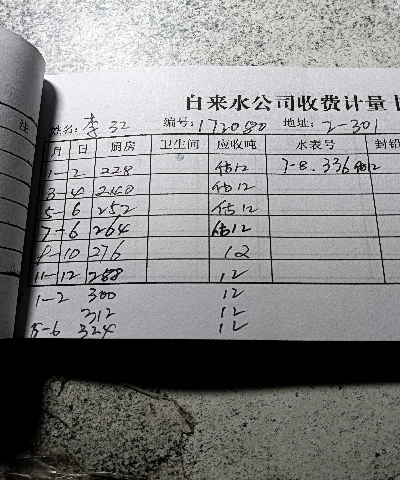 自来水公司收费计量
姓名: 李 编号: 172080 地址: 2-301
月 日 厨房 卫生间 应收吨 水表号 封铅
1-2 228 估12 7-8. 336 估12
3-4 240 估12
5-6 252 估12
7-6 264 估12
9-10 276 12
11-12 288 12
1-2 300 12
312 12
5-6 324 12
注